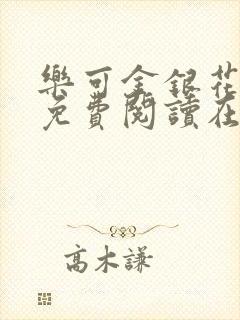 樂可金銀花
免費閱讀在
高木謙